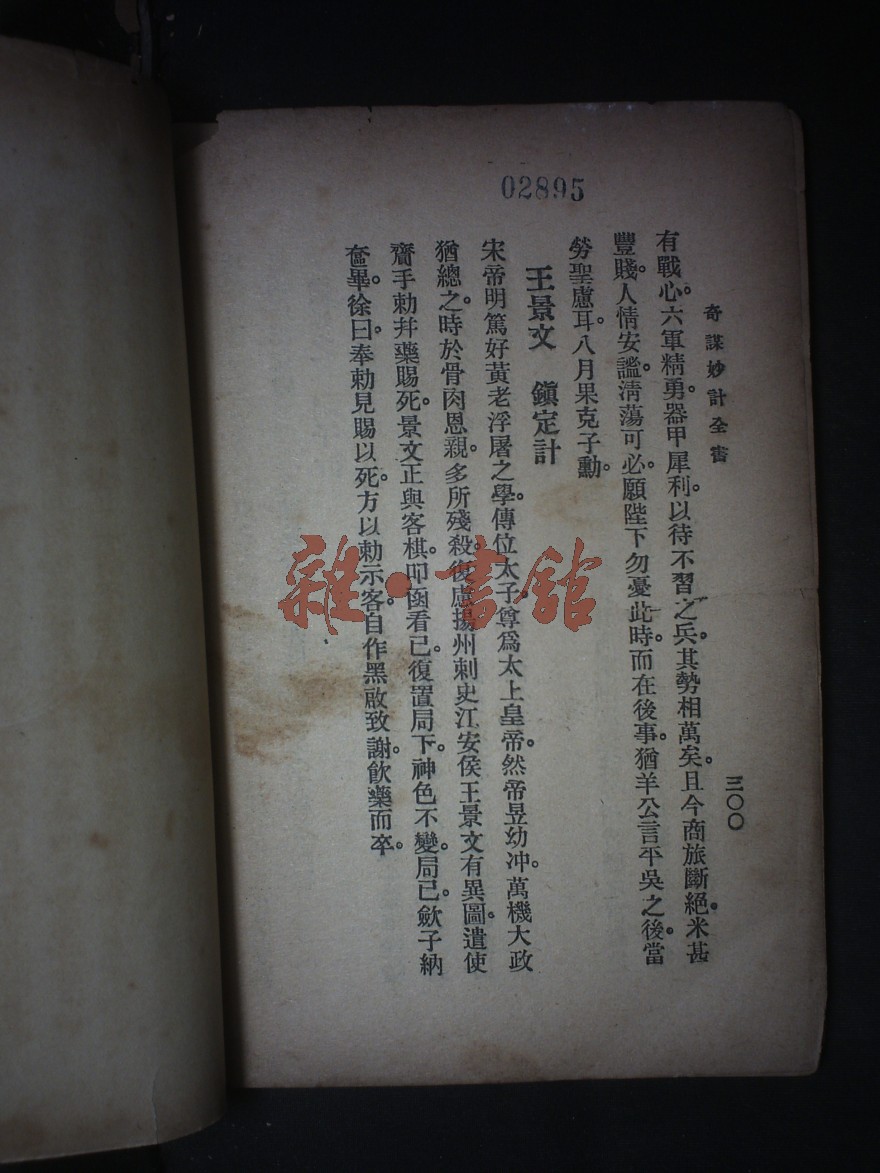 02895
奇謀妙計全書
三〇〇
有戰心。六軍精勇。器甲犀利。以待不習之兵。其勢相萬矣。且今商旅斷絕。米甚
豐賤。人情安謐。淸蕩可必。願陛下勿憂此時。而在後事。猶羊公言平吳之後。當
勞聖慮耳。八月果克子勳。
王景文　鎭定計
宋帝明篤好黃老浮屠之學。傳位太子。尊爲太上皇帝。然帝昱幼冲。萬機大政
猶總之。時於骨肉恩親。多所殘殺。復慮揚州刺史江安侯王景文有異圖。遣使
齎手勅幷藥賜死。景文正與客棋。叩函看已。復置局下。神色不變。局已。歛子納
奩畢。徐曰。奉勅見賜以死。方以勅示客。自作黑啟致謝。飮藥而卒。
雜·書館